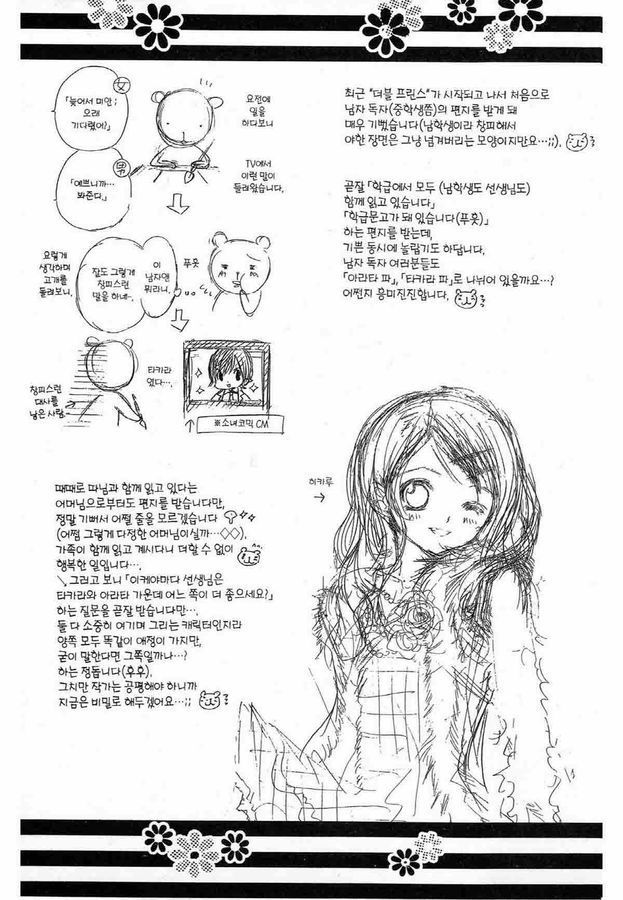 요전에
일을
하다보니
女
「늦어서 미안;
오래
기다렸어?」
男
「예쁘니까…
봐준다.」
TV에서
이런 말이
들려왔습니다.
푸웃
이
남자앤
뭐라니,
잘도 그렇게
창피스런
말을 하네~.
요렇게
생각하며
고개를
돌려보니,
타카라
였다…,
창피스런
대사를
낳은 사람.
※소녀코믹 CM
최근 "더블 프린스"가 시작되고 나서 처음으로
남자 독자(중학생쯤)의 편지를 받게 돼
매우 기뻤습니다(남학생이라 창피해서
야한 장면은 그냥 넘겨버리는 모양이지만요…;;).
곧잘 「학급에서 모두 (남학생도 선생님도)
함께 읽고 있습니다」
「학급문고가 돼 있습니다(푸웃)」
하는 편지를 받는데,
기쁜 동시에 놀랍기도 하답니다.
남자 독자 여러분들도
「아라타 파」, 「타카라 파」로 나뉘어 있을까요…?
어쩐지 흥미진진합니다.
히카루
때때로 따님과 함께 읽고 있다는
어머님으로부터도 편지를 받습니다만,
정말 기뻐서 어쩔 줄을 모르겠습니다
(어쩜 그렇게 다정한 어머님이실까…◇◇).
가족이 함께 읽고 계시다니 더할 수 없이
행복한 일입니다…
\그러고 보니 「이케야마다 선생님은
타카라와 아라타 가운데 어느 쪽이 더 좋으세요?」
하는 질문을 곧잘 받습니다만…,
둘 다 소중히 여기며 그리는 캐릭터인지라
양쪽 모두 똑같이 애정이 가지만,
굳이 말한다면 그쪽일까나…?
하는 정돕니다(후후).
그치만 작가는 공평해야 하니까
지금은 비밀로 해두겠어요…;;